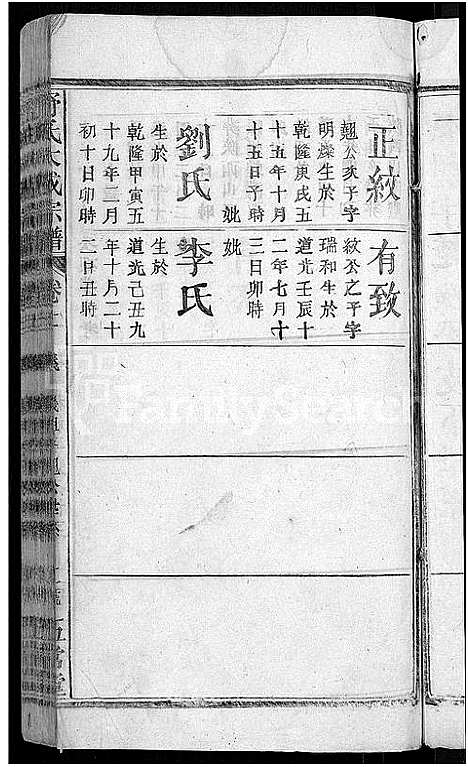 正紋
翹公次子字
明燦生於
乾隆庚戌五
十五年十月
十五日子時
妣
劉氏
生於
乾隆甲寅五
十九年二月
初十日卯時
有致
紋公之子字
瑞和生於
道光壬辰十
二年七月十
三日卯時
妣
李氏
生於
道光己丑九
年十月二十
二日丑時
氏大成宗譜
卷
FamilySearch